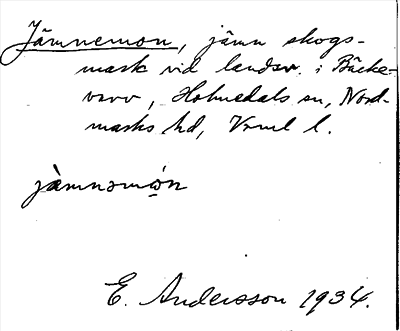 Jämnemon, jämn skogs-
mark vid landsv. i Bäcke-
varv, Holmedals sn, Nord-
marks hd, Vrml l.
jàmnəmòn
E. Andersson 1934.